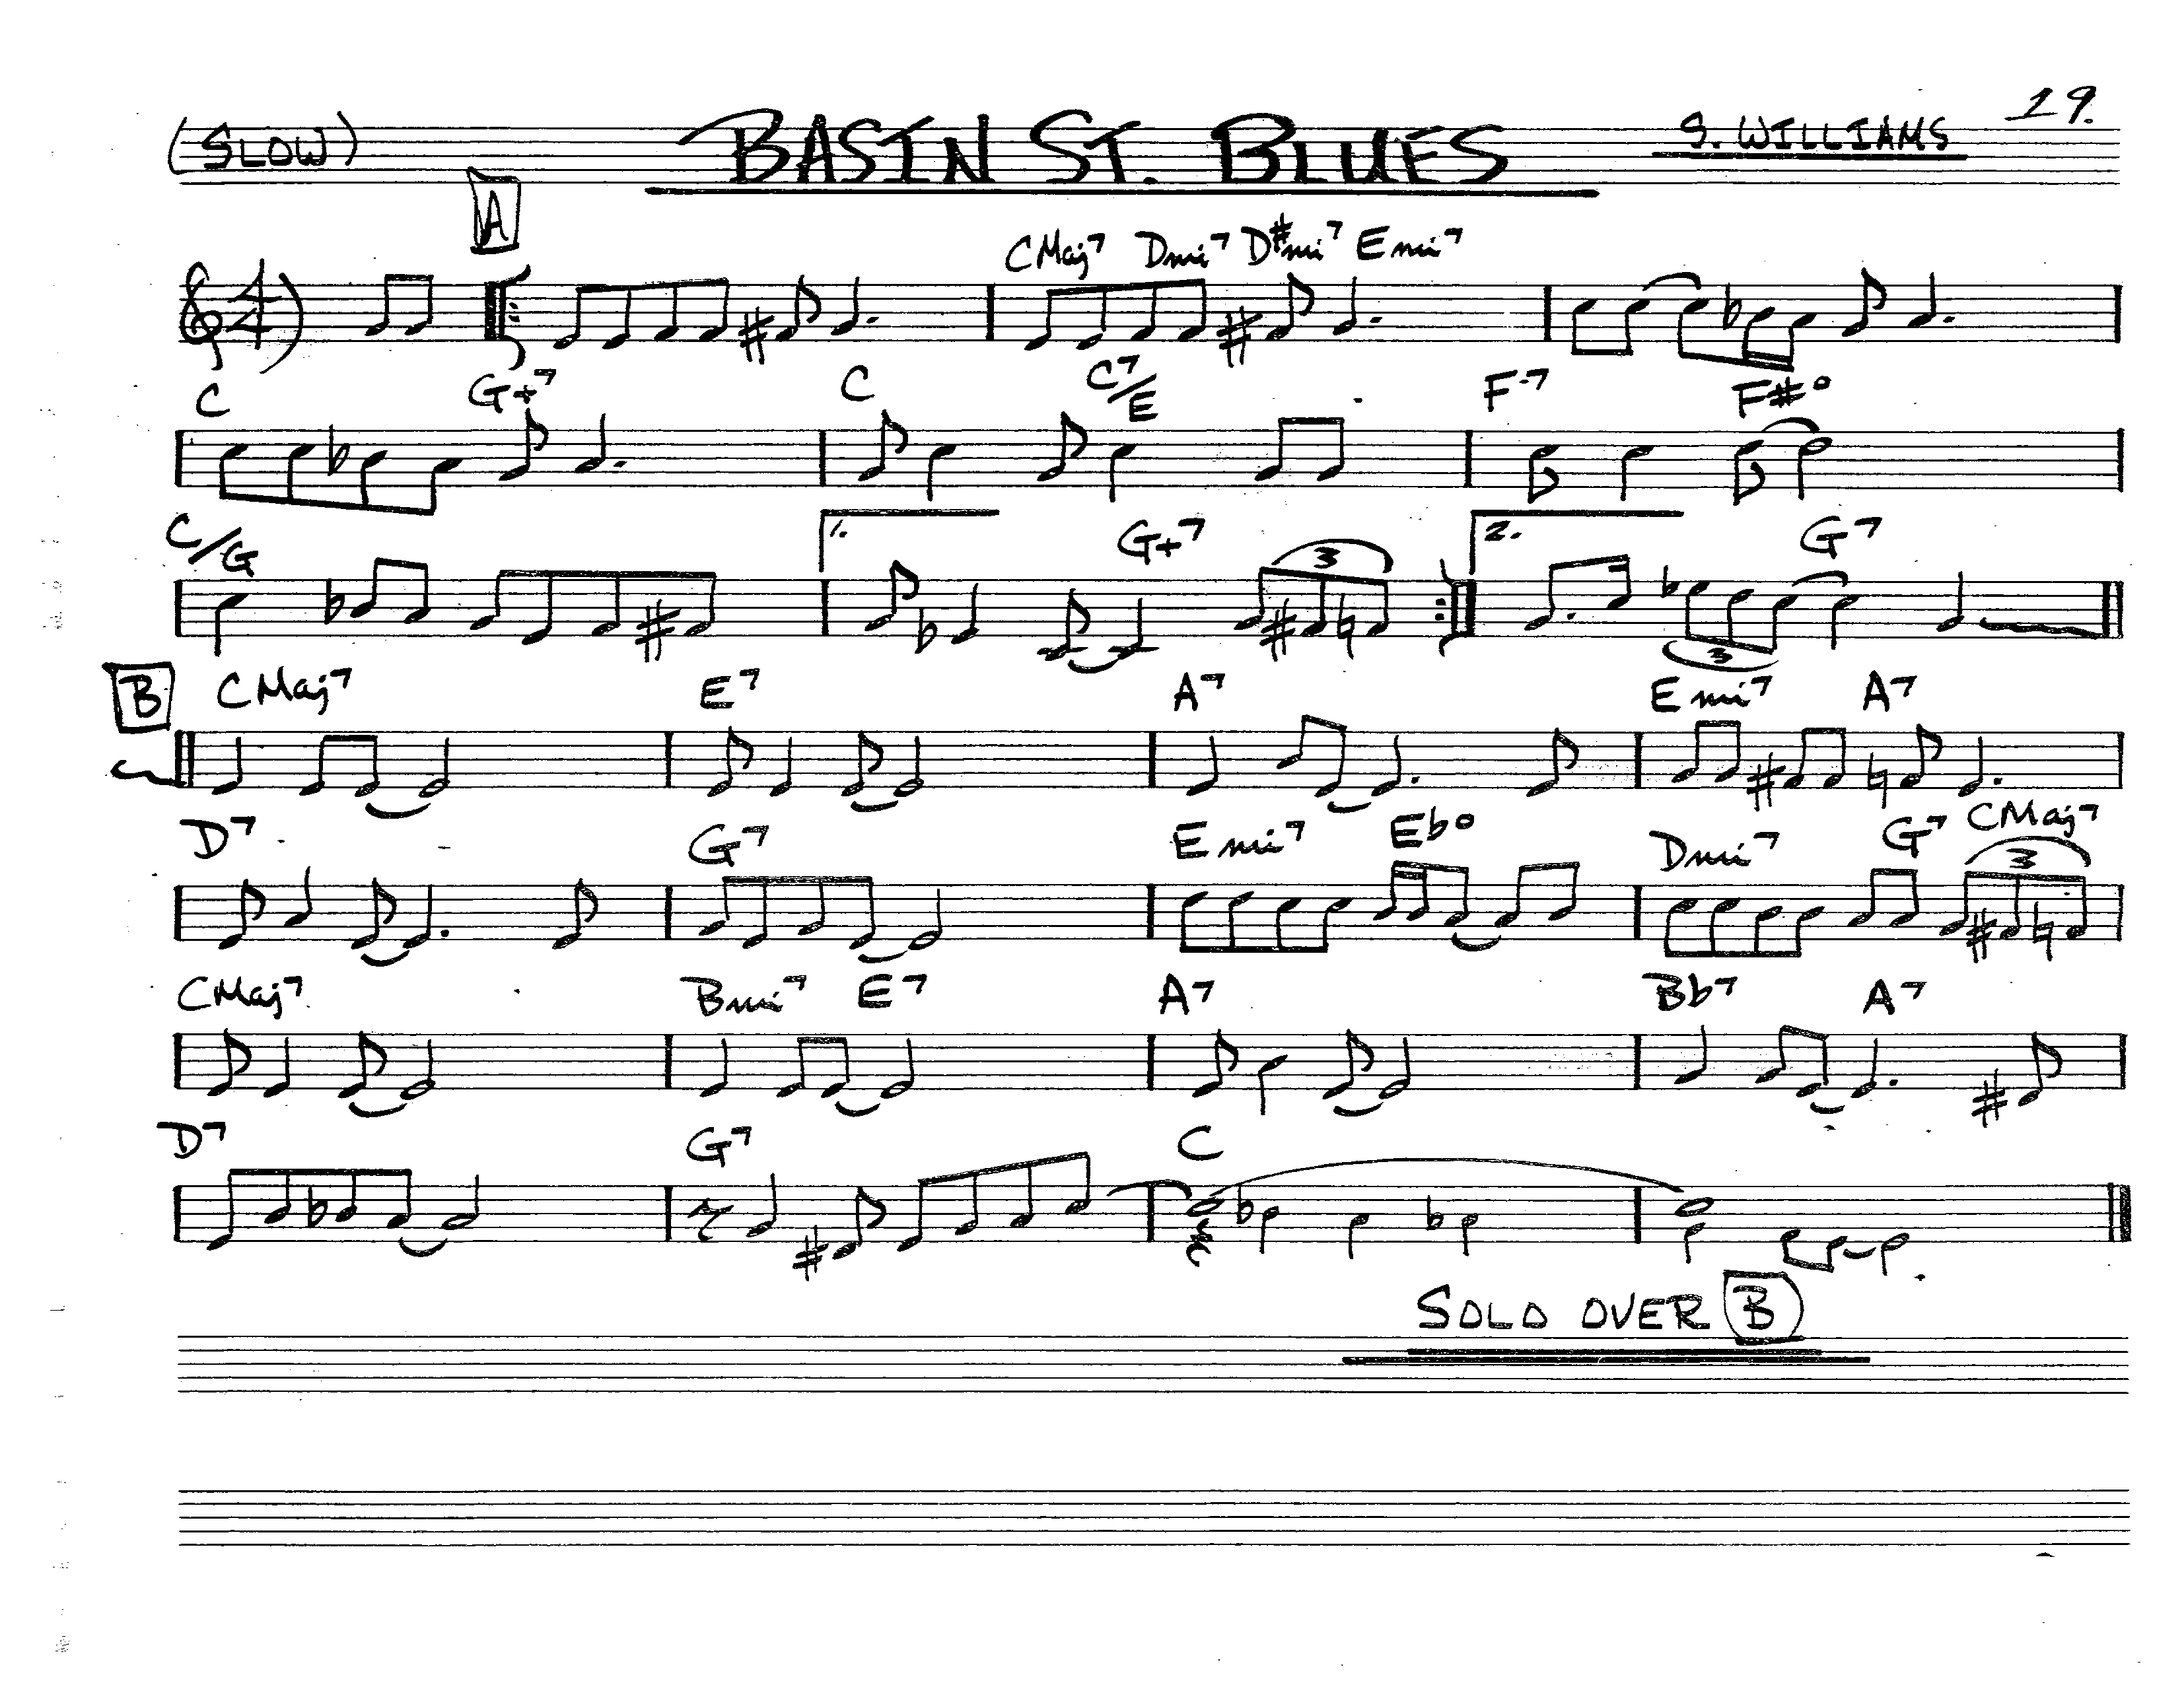 (SLOW) BASIN ST. BLUES S. WILLIAMS 19.
A
CMaj7 Dmi7 D#mi7 Emi7
4/4
C G+7 C C7/E F-7 F#o
C/G 1. G+7 3 2. G7
3
B CMaj7 E7 A7 Emi7 A7
D7 G7 Emi7 Ebo Dmi7 G7 CMaj7
3
CMaj7 Bmi7 E7 A7 Bb7 A7
D7 G7 C
SOLO OVER B